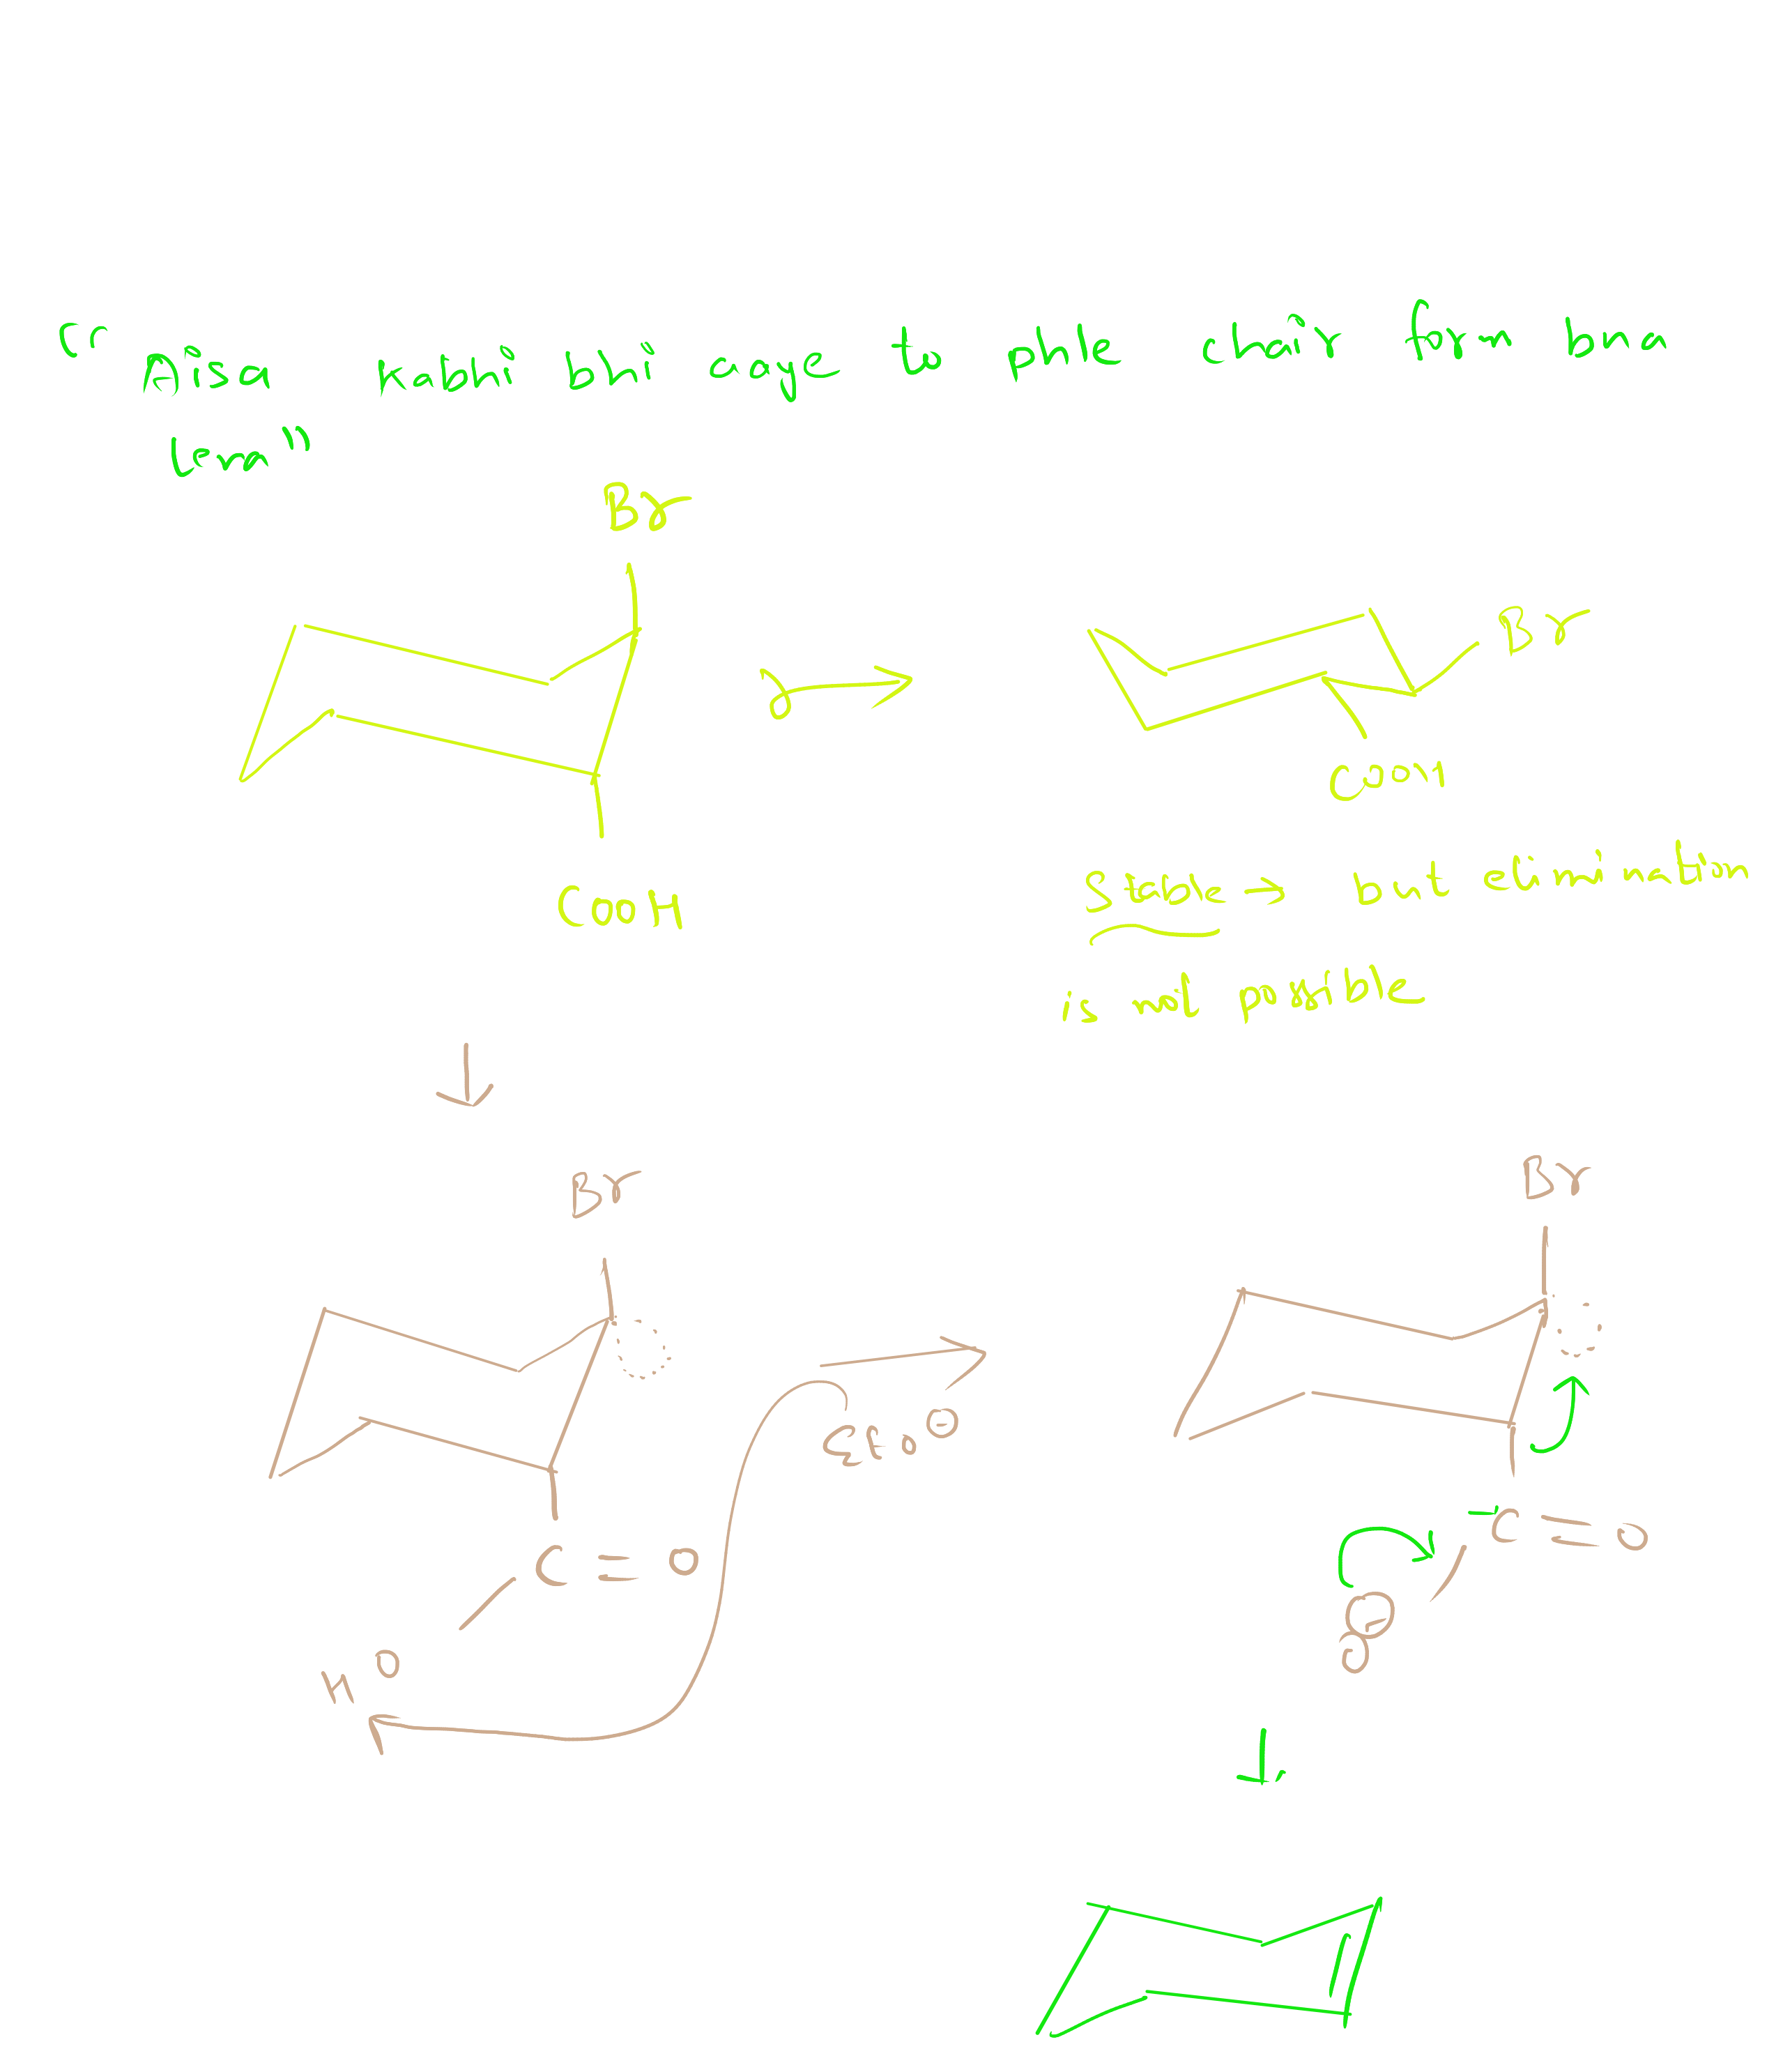 “Aisa kabhi bhi aaye to phle chair form bna
lena”
Br
Br
COOH
COOH
Stable → but elimination
is not possible
Br
Br
EtO⊖
C = O
-C = O
HO
O⊖